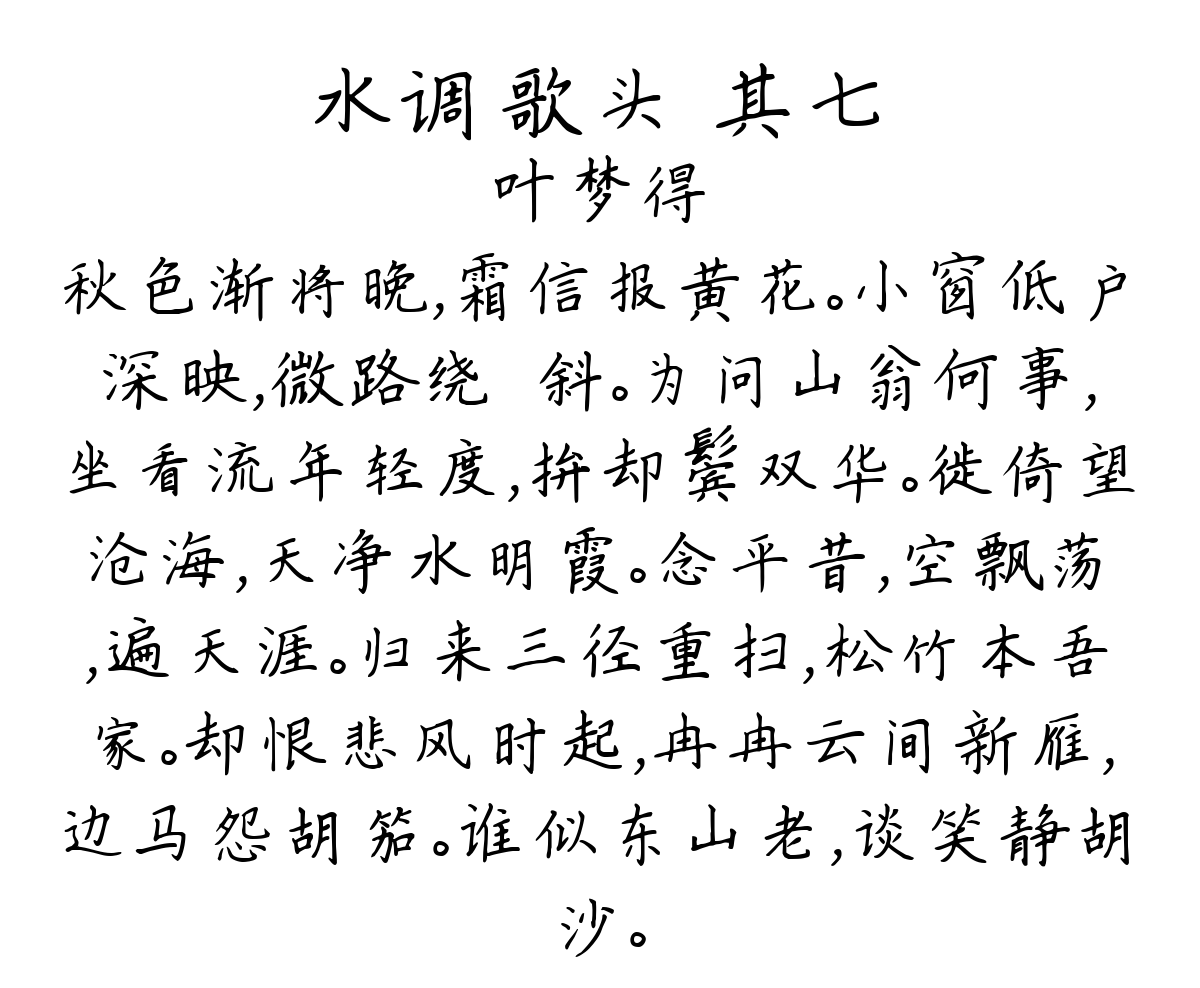 水调歌头 其七
叶梦得
秋色渐将晚,霜信报黄花。小窗低户
深映,微路绕 斜。为问山翁何事,
坐看流年轻度,拚却鬓双华。徙倚望
沧海,天净水明霞。念平昔,空飘荡
,遍天涯。归来三径重扫,松竹本吾
家。却恨悲风时起,冉冉云间新雁,
边马怨胡笳。谁似东山老,谈笑静胡
沙。